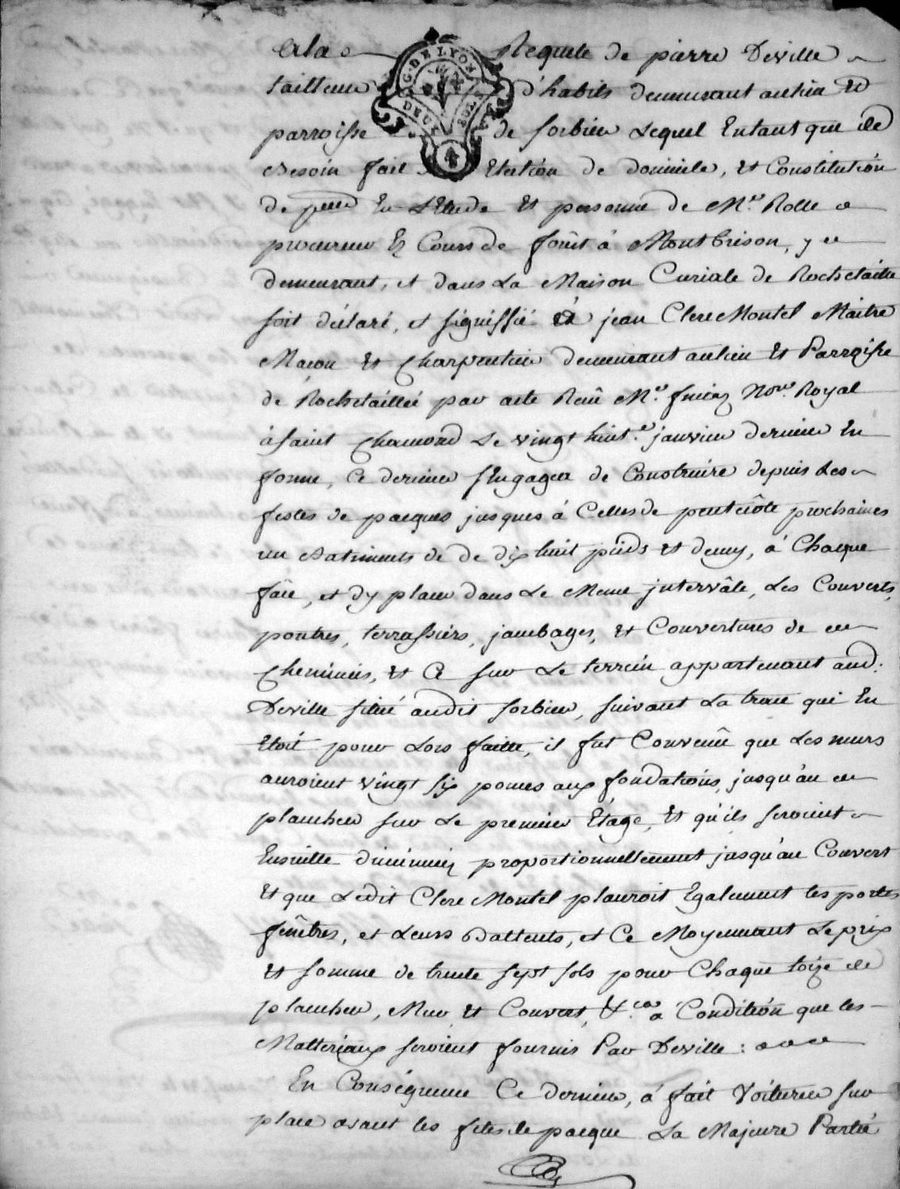 A la Requete de pierre Deville
G. DE LYON
DEUX SOLS
4
tailleur d'habits demeurant au lieu Et
parroisse de sorbier Lequel Entant que de
Besoin fait Election de domicile, et Constitution
de En L'Etude Et personne de Me. Rolle
procureur Es Cours de forêt à Montbrison, y
demeurant, et dans La Maison Curiale de Rochetaillé
soit déclaré, et signiffié à jean Clere Montel Maitre
Maçon Et Charpentier demeurant au lieu Et Parroisse
de Rochetaillée par acte Reçû Me. Nore. Royal
à saint Chamond Le vingt huit.e janvier dernier En
forme, Ce dernier s'Engagea de Construire depuis Les
festes de pacques jusques à Celles de pentecôte prochaines
un Batiments de de dix huit pieds et demy, à Chaque
face, et d'y placer dans Le Meme intervâle, Les Couverts,
poutres, terrassiers, jambages, Et Couvertures de
Cheminées, Et Ce sur Le terrein appartenant aud.
Deville situé audit sorbier, suivant La trace qui En
Etoit pour Lors faitte, il fut Convenû que Les murs
auroient vingt six pouces aux fondations, jusqu'au
plancher sur Le premier Etage, Et qu'ils seroient
Ensuitte diminués proportionnellement jusqu'au Couvert
Et que Ledit Clere Montel placeroit Egalement les portes
fenêtres, et Leurs Battents, et Ce Moyennant Le prix
Et somme de trente sept sols pour Chaque toize de
plancher, Mur Et Couvert, &.ca à Condition que les
Matteriaux seroient fournis Par Deville :
En Conséquence Ce dernier, à fait Voiturer sur
place avant les fetes de pacque La Majeure Partie